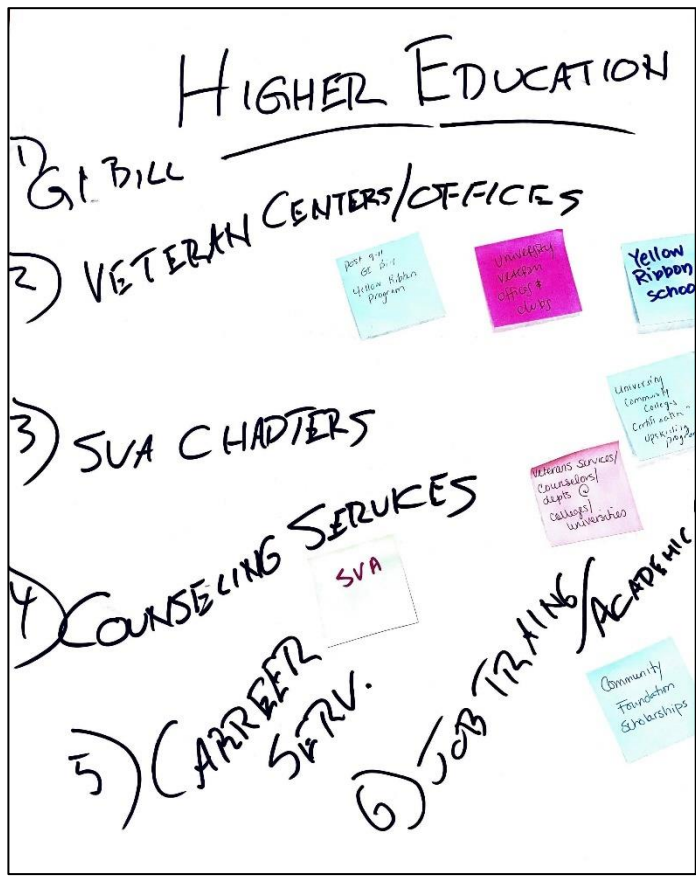 HIGHER EDUCATION
1) G.I. BILL
2) VETERAN CENTERS/OFFICES
Post 9-11
GI Bill
Yellow Ribbon
Program
University
Veteran
offices &
clubs
Yellow
Ribbon
School
3) SVA CHAPTERS
University
Community
Colleges
Certification
Upskilling
program
Veterans services/
Counselors/
depts @
colleges/
universities
4) COUNSELING SERVICES
SVA
5) CARREER
SERV.
6) JOB TRAING/ACADEMIC
Community
Foundation
Scholarships